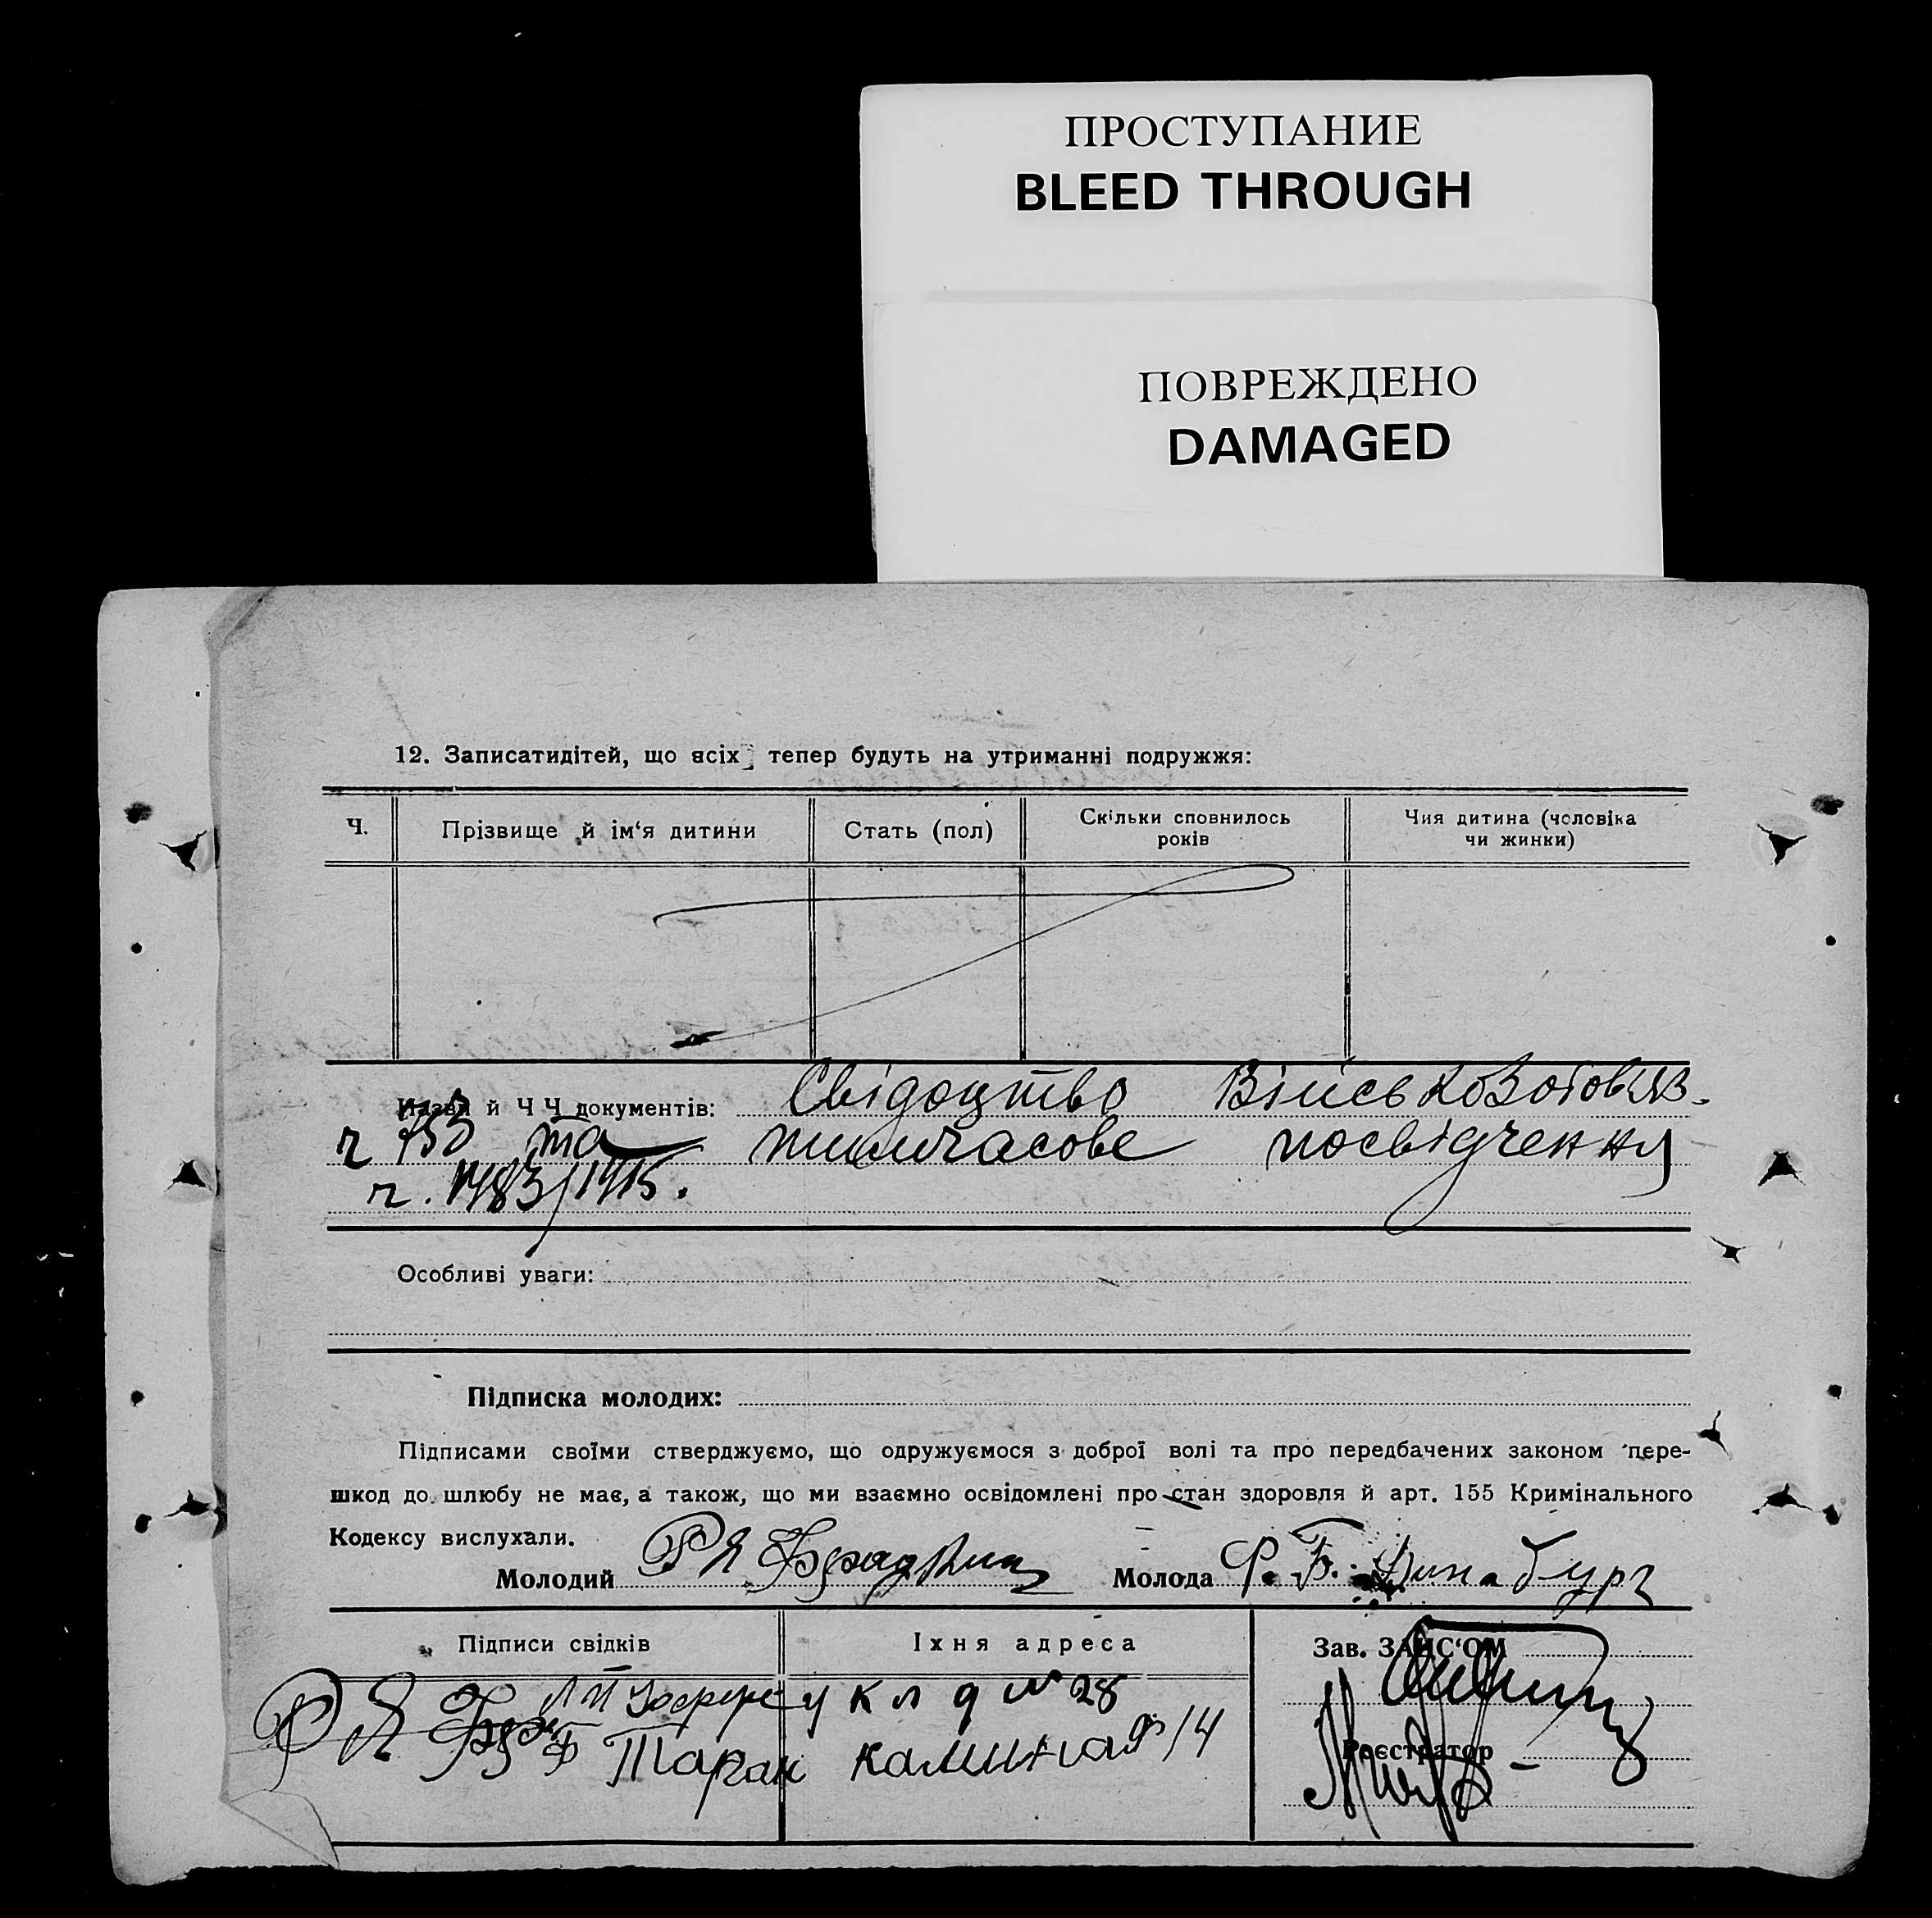 ПРОСТУПАНИЕ
BLEED THROUGH
ПОВРЕЖДЕНО
DAMAGED
12. Записатидітей, що всіх тепер будуть на утриманні подружжя:
Ч.
Прізвище й ім‘я дитини
Стать (пол)
Скільки сповнилось
років
Чия дитина (чоловіка
чи жинки)
Назви й Ч Ч документів: Свідоцтво
та тимчасове посвідчення
ч.
Особливі уваги:
Підписка молодих:
Підписами своїми стверджуємо, що одружуємося з доброї волі та про передбачених законом пере-
шкод до шлюбу не має, а також, що ми взаємно освідомлені про стан здоровля й арт. 155 Кримінального
Кодексу вислухали.
Молодий Р Я Фрадкин Молода Ф. Б. Динабург
Підписи свідків
Їхня адреса
Зав. ЗАНС‘ОМ
№ 28
Таран
Реєстратор